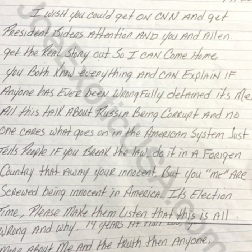 I wish you could get on CNN and get
President Bidens Attention AND you and Allen
get the Real Story out So I can Come Home
You Both Know everything and can Explain if
Anyone has Ever been Wrongfully detained its Me.
All this talk About Russia Being Corrupt and no
one cares what goes on in the American System Just
tells People if you Break the law do it in a Foreign
Country that away your innocent. But you "me" ARE
Screwed being innocent in America. Its Election
Time, Please Make them Listen that this is All
Wrong and why. 19 years
More About Me And the truth then Anyone.